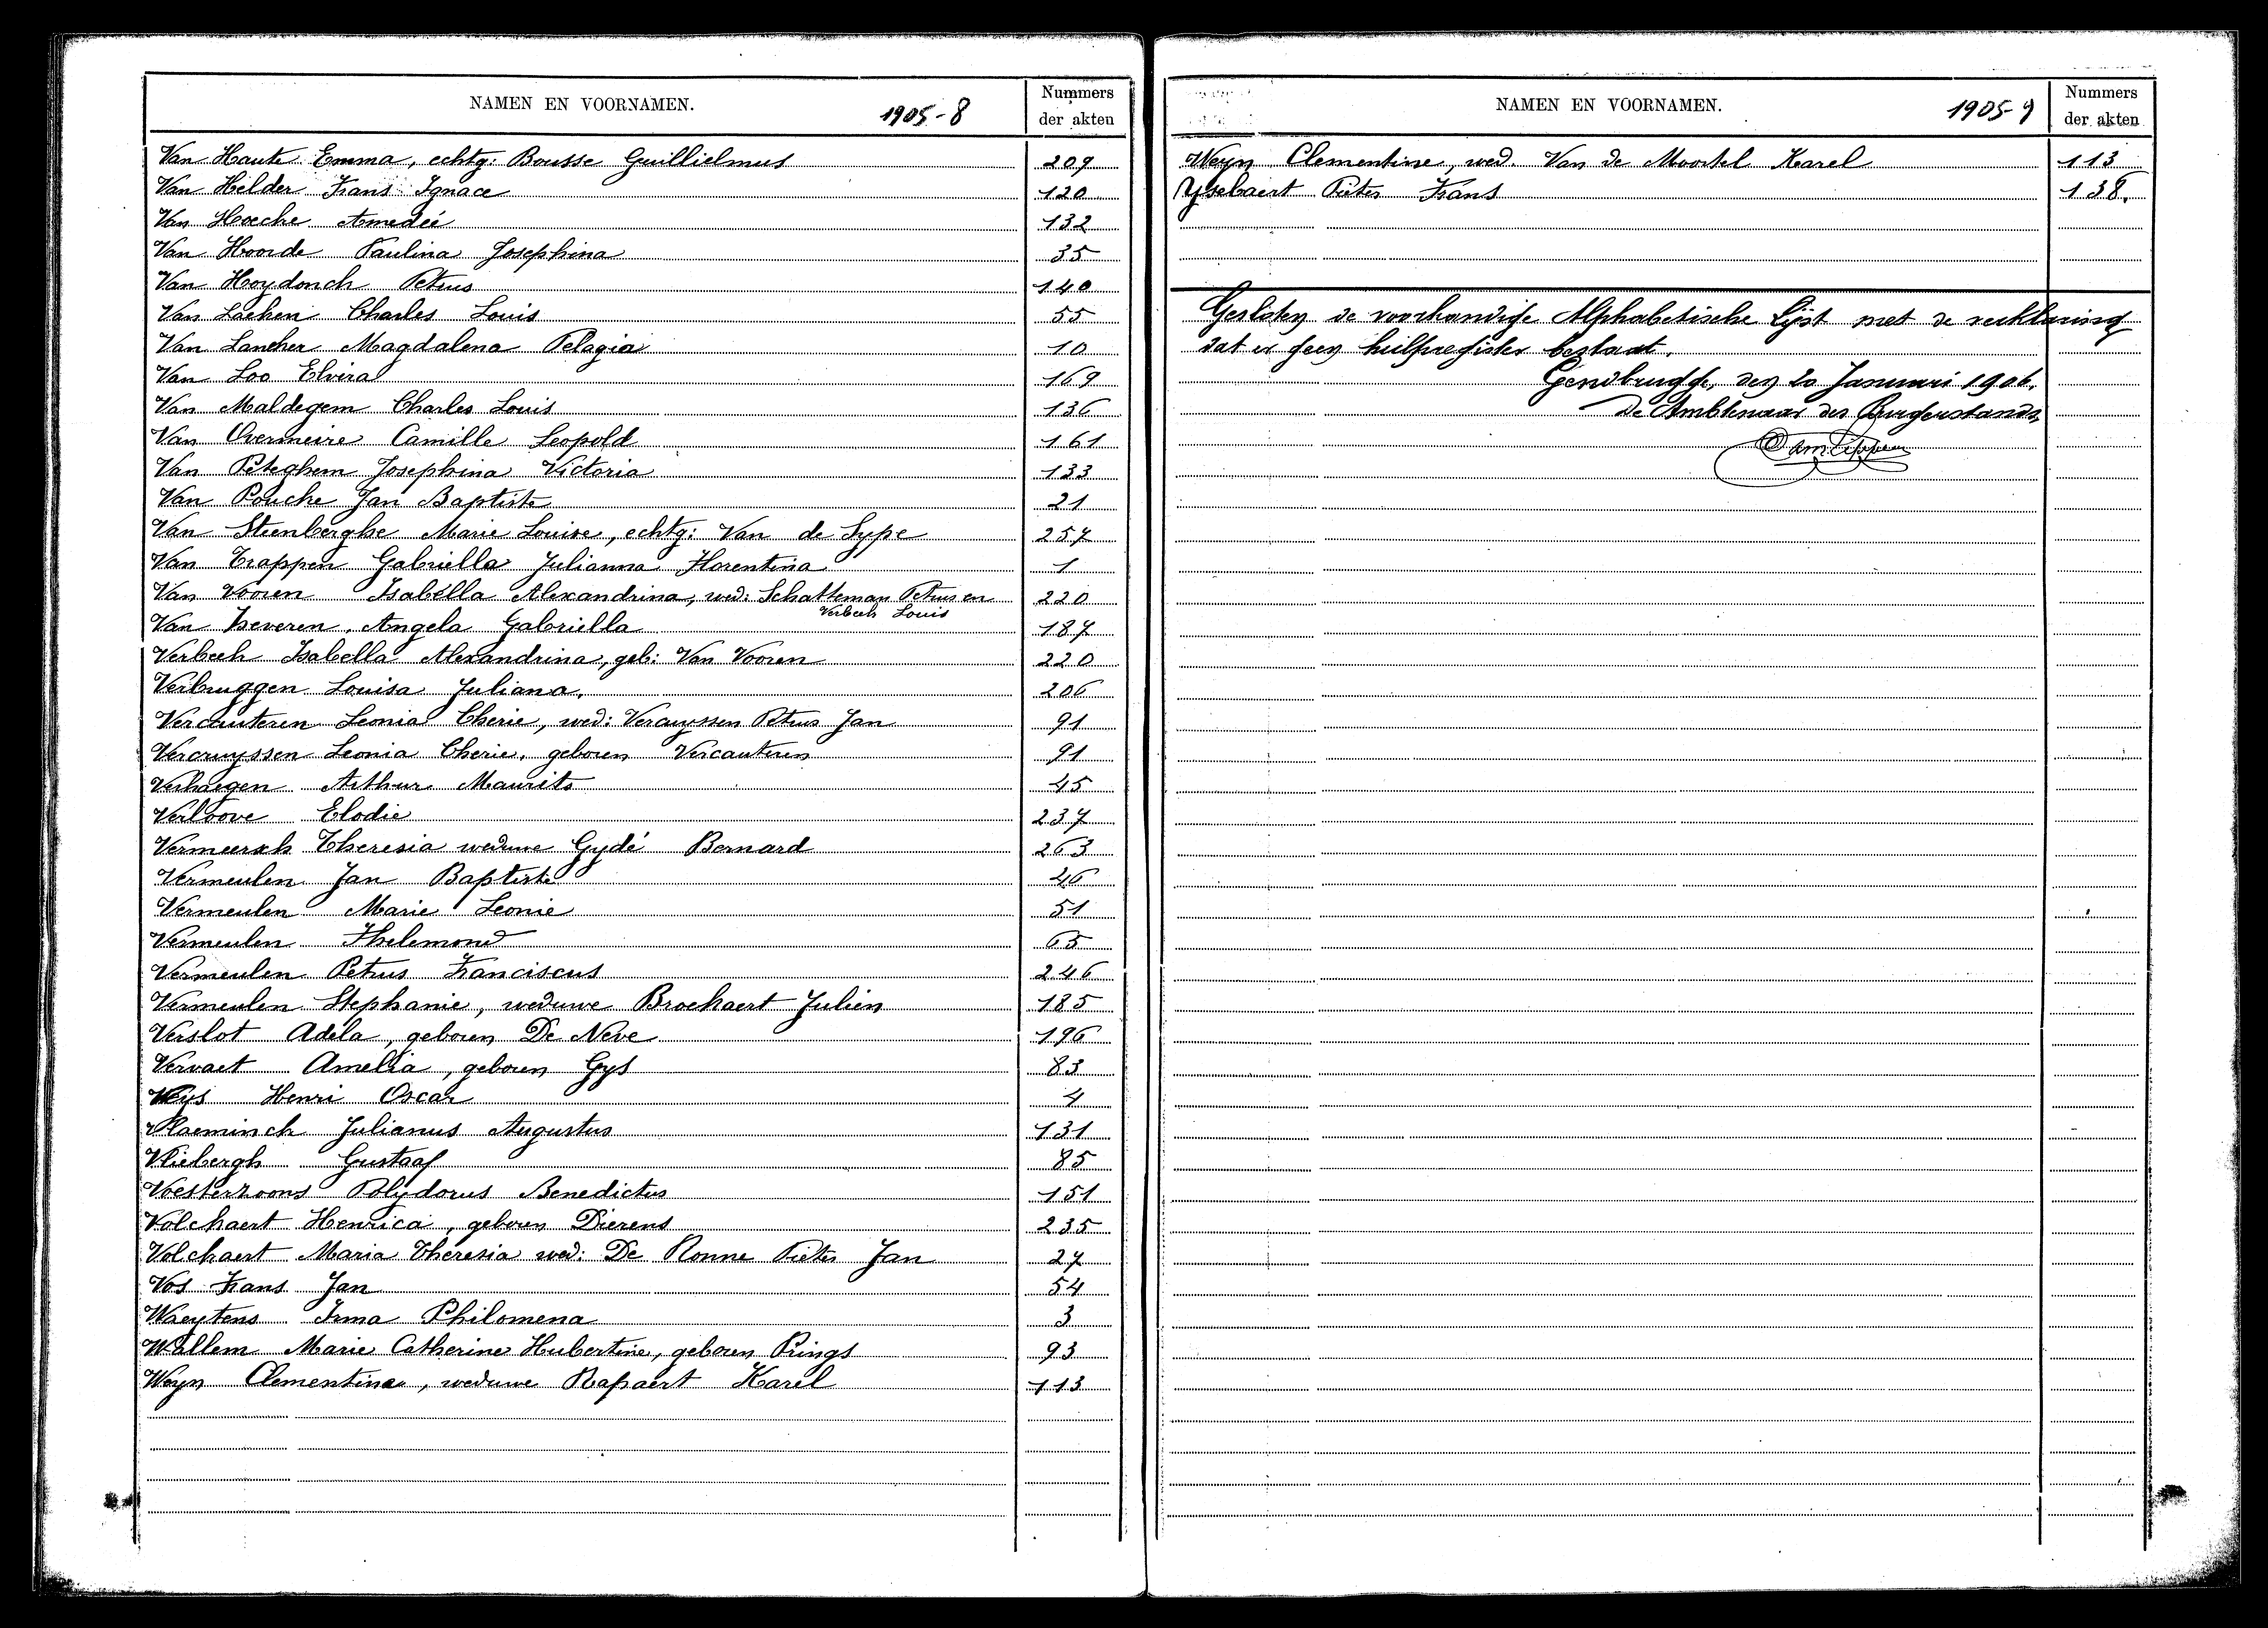 NAMEN EN VOORNAMEN. 1905-8 Nummers der akten
Van Haute Emma, echtg: Bousse Guillielmus 209
Van Helder Frans Ignace 120
Van Hoecke Amedée 132
Van Hoorde Paulina Josephina 35
Van Hoydonck Petrus 140
Van Laeken Charles Louis 55
Van Lancker Magdalena Pelagia 10
Van Loo Elvira 169
Van Maldegem Charles Louis 136
Van Overmeire Camille Leopold 161
Van Peteghem Josephina Victoria 133
Van Poucke Jan Baptiste 21
Van Steenberghe Marie Louise, echtg: Van de Sype 257
Van Trappen Gabriella Julianna Florentina 1
Van Vooren Isabella Alexandrina, wed: Schatteman Petrus en 220
Verbeek Louis
Van Zeveren Angela Gabriella 187
Verbeek Isabella Alexandrina, geb: Van Vooren 220
Verbruggen Louisa Juliana. 206
Vercauteren Leonia Cherie, wed: Vercruyssen Petrus Jan 91
Vercruyssen Leonia Cherie, geboren Vercauteren 91
Verhaegen Arthur Maurits 45
Verloove Elodie 237
Vermeersch Theresia weduwe Gydé Bernard 263
Vermeulen Jan Baptiste 46
Vermeulen Marie Leonie 51
Vermeulen Thelemond 65
Vermeulen Petrus Franciscus 246
Vermeulen Stephanie, weduwe Brockaert Julien 185
Verslot Adela, geboren De Neve 196
Vervaet Amelia, geboren Gys 83
Henri Oscar 4
Vlaeminck Julianus Augustus 131
Vliebergh Gustaaf 85
Voesterzoons Polydorus Benedictus 151
Volckaert Henrica, geboren Dierens 235
Volckaert Maria Theresia wed: De Ronne Pieter Jan 27
Vos Frans Jan 54
Waeytens Irma Philomena 3
Wallem Marie Catherine Hubertine, geboren Prings 93
Weyn Clementina, weduwe Rapaert Karel 113
NAMEN EN VOORNAMEN. 1905-9 Nummers der akten
Weyn Clementine, wed. Van de Moortel Karel 113
Ysebaert Pieter Frans 138.
Gesloten de voorhandige Alphabetische lijst met de verklaring
dat er geen hulpregister bestaat.
Gendbrugge, den 20 Januari 1906.
De Ambtenaar den Burgerstands,